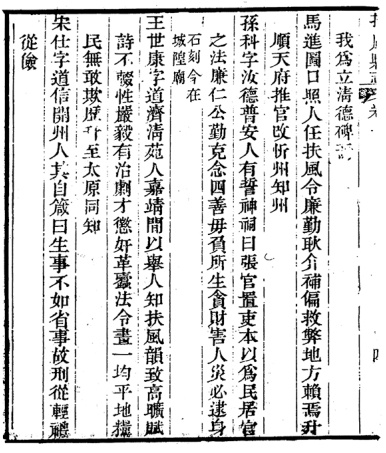 我為立清德碑
馬進圖口照人任扶風令廉勤耿介補偏救弊地方賴焉升
順天府推官改忻州知州
孫科字汝德普安人有誓神祠曰張官置吏本以為民居官
之法廉仁公勤克念四善毋負所生貪財害人災必逮身
石刻今在
城隍廟
王世康字道濟清苑人嘉靖間以舉人知扶風韻致高曠賦
詩不輟性嚴毅有治劇才懲奸革蠹法令畫一均平地糧
民無敢欺歷官至太原同知
宋仕字道信開州人其自箴曰生事不如省事故刑從輕禮
從儉